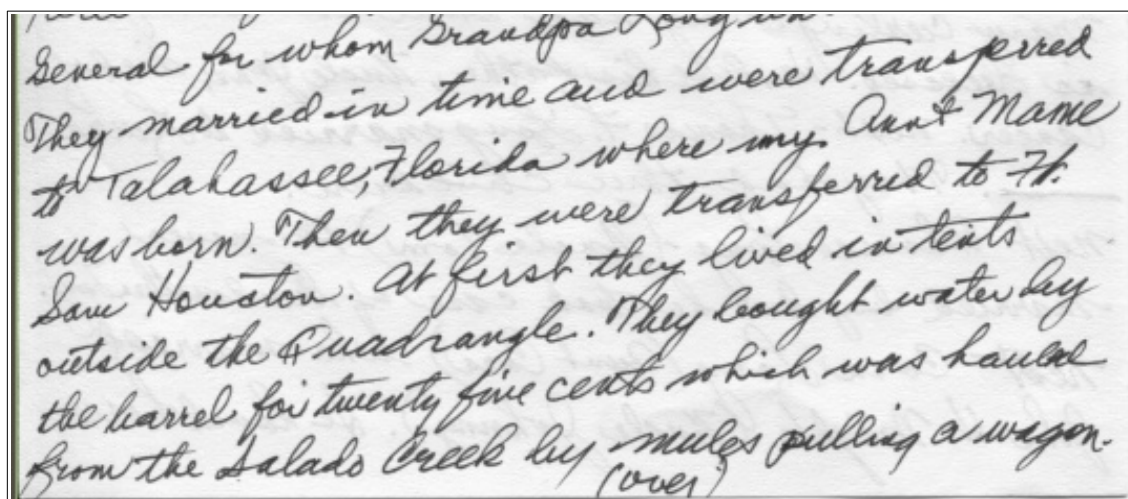 General for whom Grandpa Long
They married in time and were transferred
to Talahassee, Florida where my Aunt Mame
was born. Then they were transferred to Ft.
Sam Houston. At first they lived in tents
outside the Quadrangle. They bought water by
the barrel for twenty five cents which was hauled
from the Salado Creek by mules pulling a wagon.
(over)